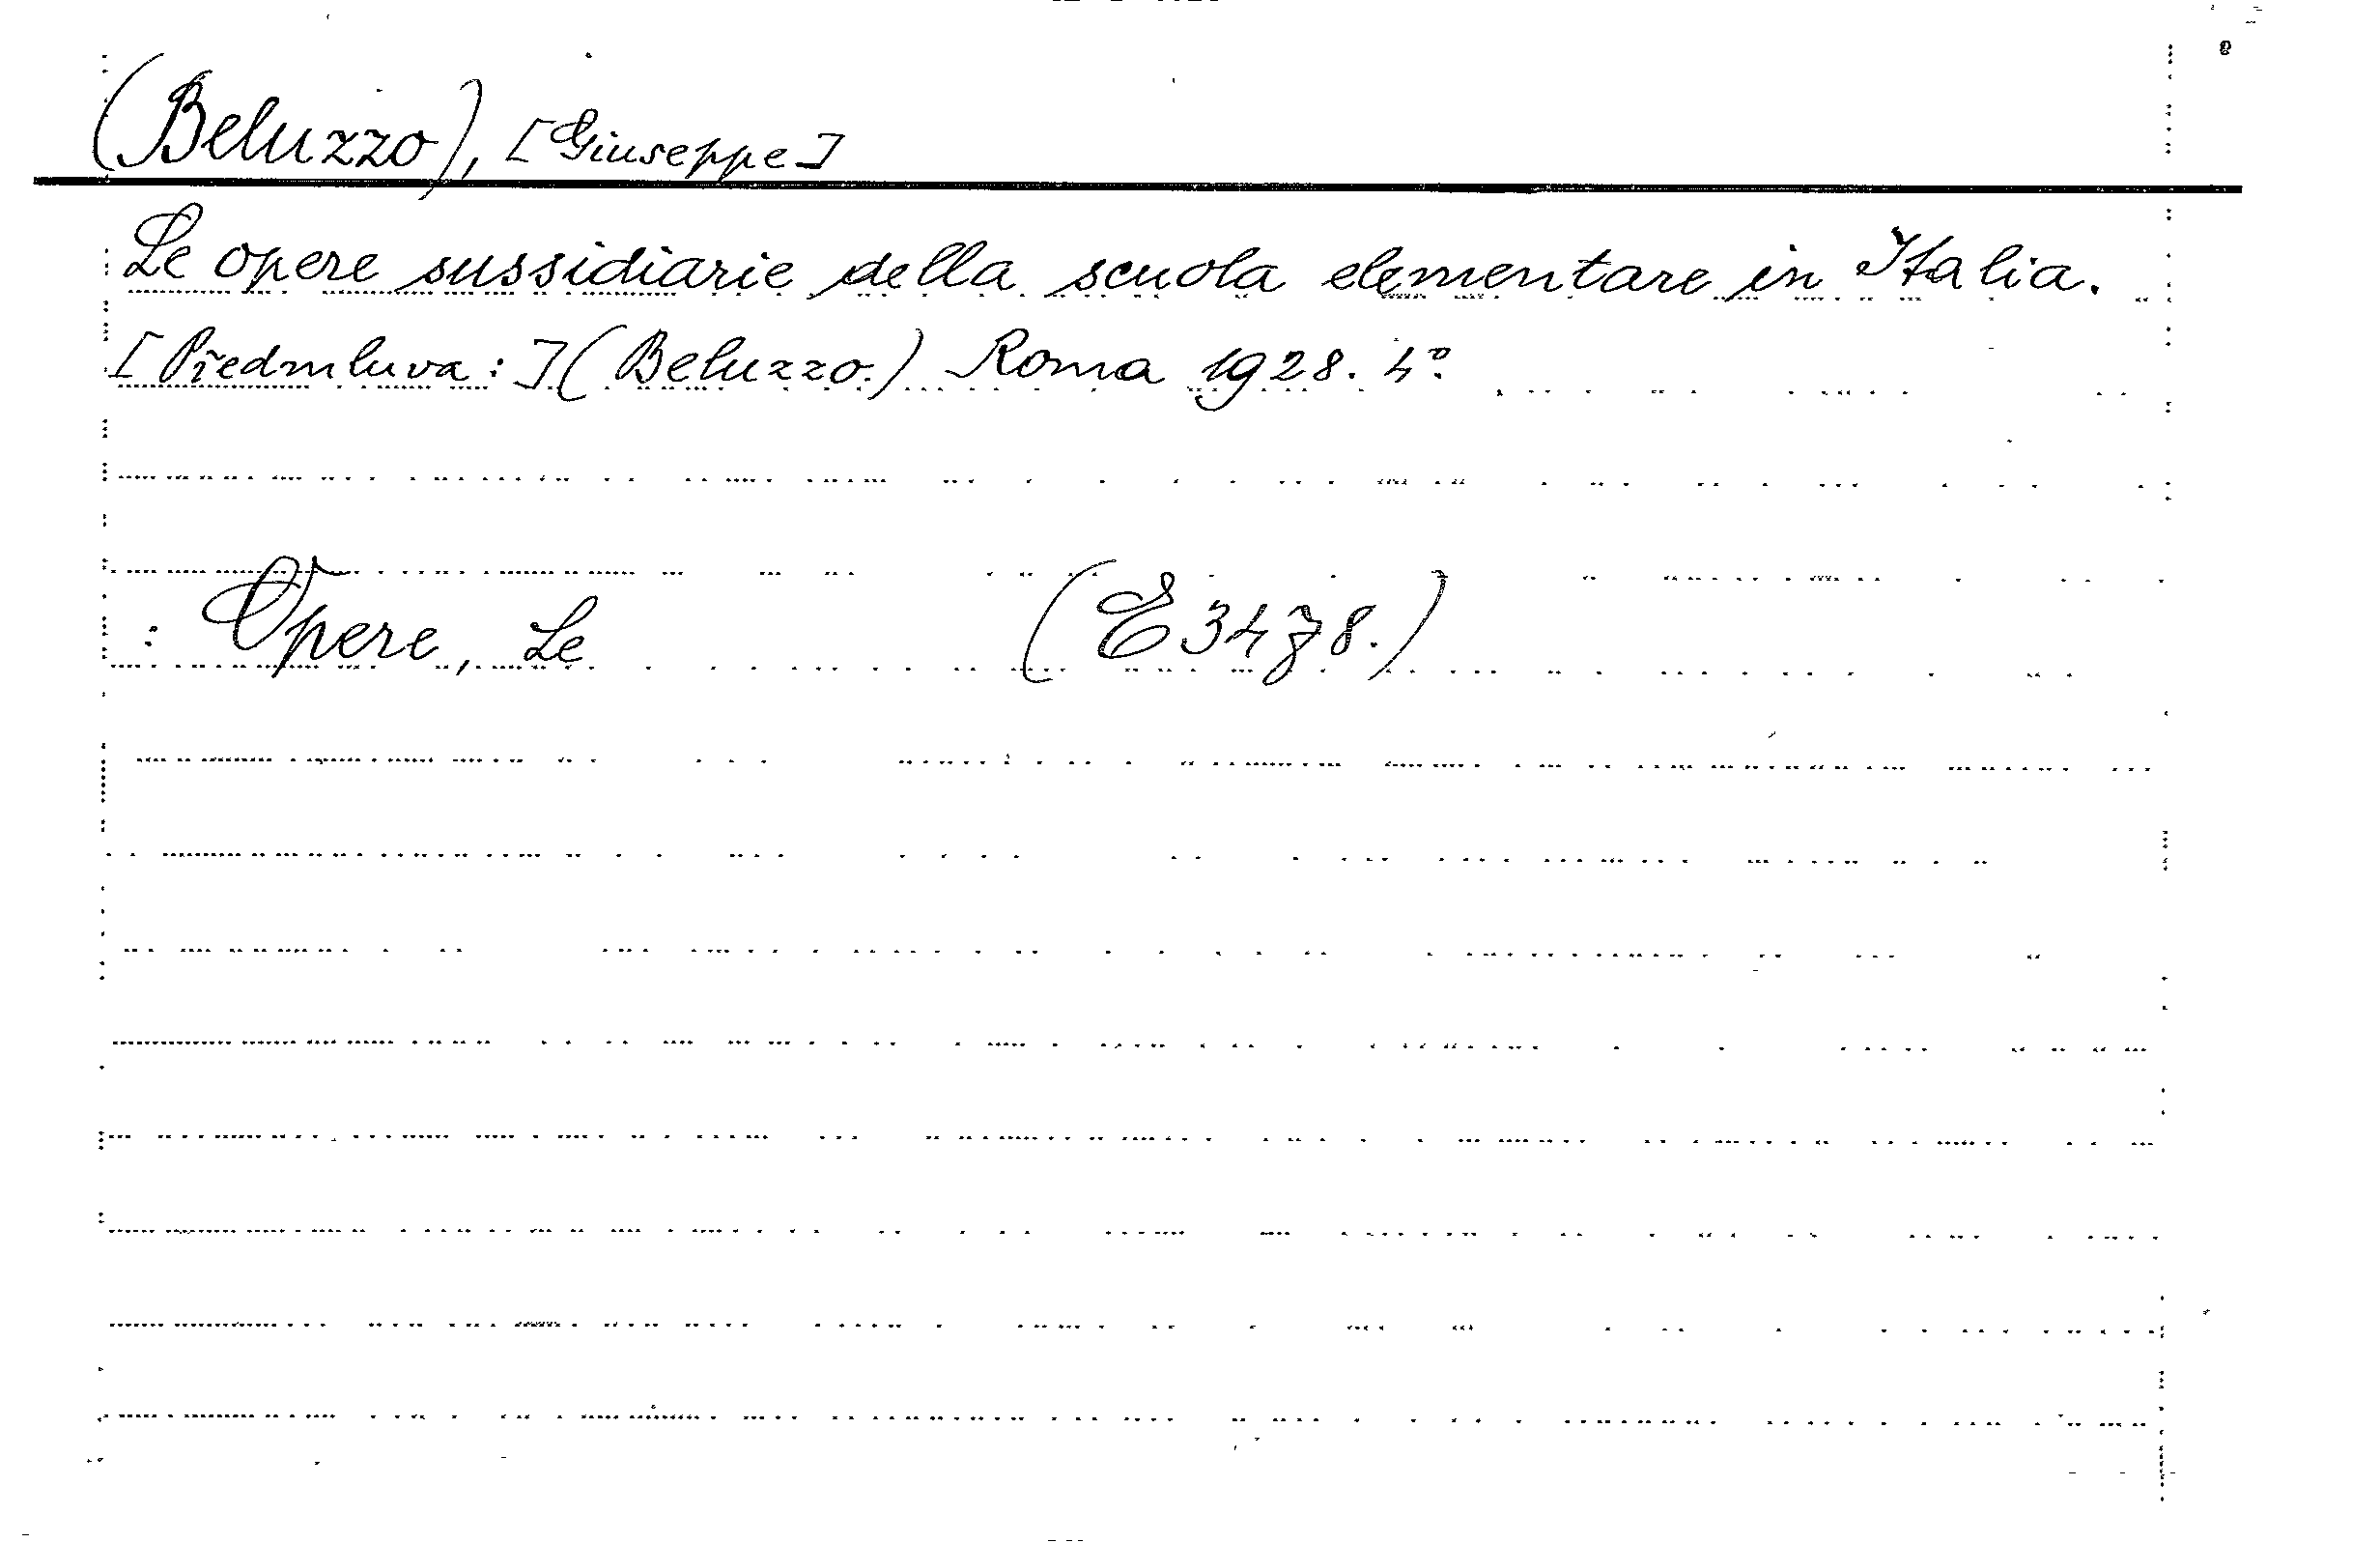 (Beluzzo), [Giuseppe]
Le opere sussidiarie della scuola elementare in Italia.
[Předmluva:] (Beluzzo.) Roma 1928. 4°.
: Opere, Le (E 3478.)